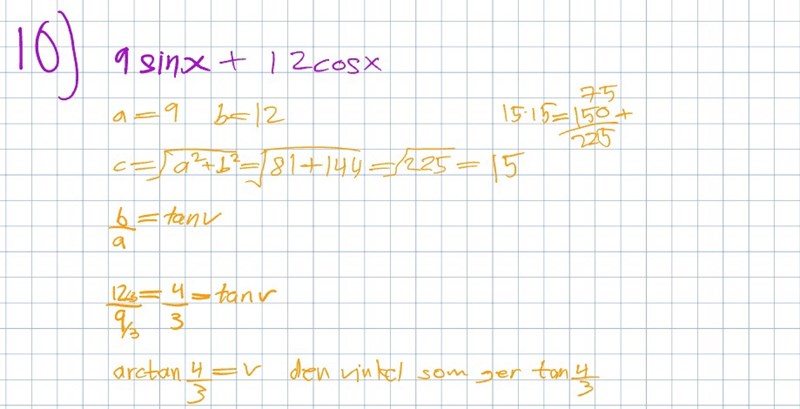 10) 9 sinx + 12cosx
a = 9 b = 12
15·15 = 150 + 75
225
c = √a²+b² = √81+144 = √225 = 15
b/a = tanv
12/3 / 9/3 = 4/3 = tanv
arctan 4/3 = v den vinkel som ger tan 4/3